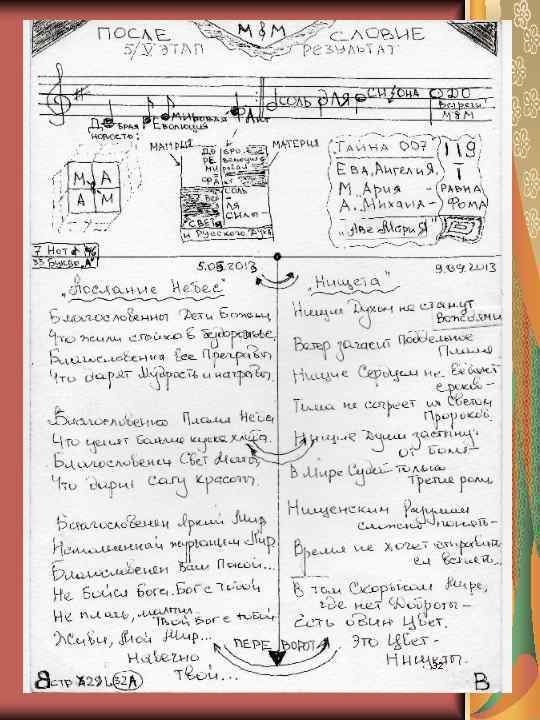 ПОСЛЕ М&М СЛОВИЕ
5/V ЭТАП РЕЗУЛЬТАТ
СОЛЬ ДЛЯ СИ ОНА ДО
Встречи
М&М
Добрая РЕволюция МИровая ФАкт
новость:
МАТРИЦА МАТЕРИЯ
М А
А М
ДО
РЕ
МИ
СОЛЬ
ЛЯ
СИЛА-
СВЕТА
и Русского Духа
ТАЙНА 007
ЕВА, АНГЕЛИЯ,
М. Ария -
А. Михаил -
"Аве Мария"
119
I
РАВНА
ФОМА
7 Нот
33 Буквы "А"
5.05.2013
"Послание Небес"
Благословенны Дети Божьи,
Что жили стойко в бездорожье,
Благословенны все Преграды
Что дарят Мудрость и награды.
Благословенно Пламя Неба
Что ценят больше куска хлеба.
Благословенен Свет Мой,
Что дарит Сагу Красоты.
Благословенен Яркий Мир
Исполненный журчаньем Лир.
Благословенен Вам Покой...
Не Бойся Бога. Бог с Тобой
Не плачь, Твой Бог с тобой
Живи, Мой Мир...
Навечно
Твой...
9.09.2013
"Нищета"
Нищие Духом не станут
Вождями
Ветер загасит Поддельное
Пламя
Нищие Сердцем не
Тьма не согреет их Светом
Пророков.
Нищие Души застынут
от Боли-
В Мире Судей только
Третие роли
Нищенским Разумам
сложно понять-
Время не хочет отправить
их вспять...
В том Скорбном Мире,
где нет Доброты -
Есть один Цвет.
Это Цвет -
Нищеты.
ПЕРЕВОРОТ
32
стр 32А
В